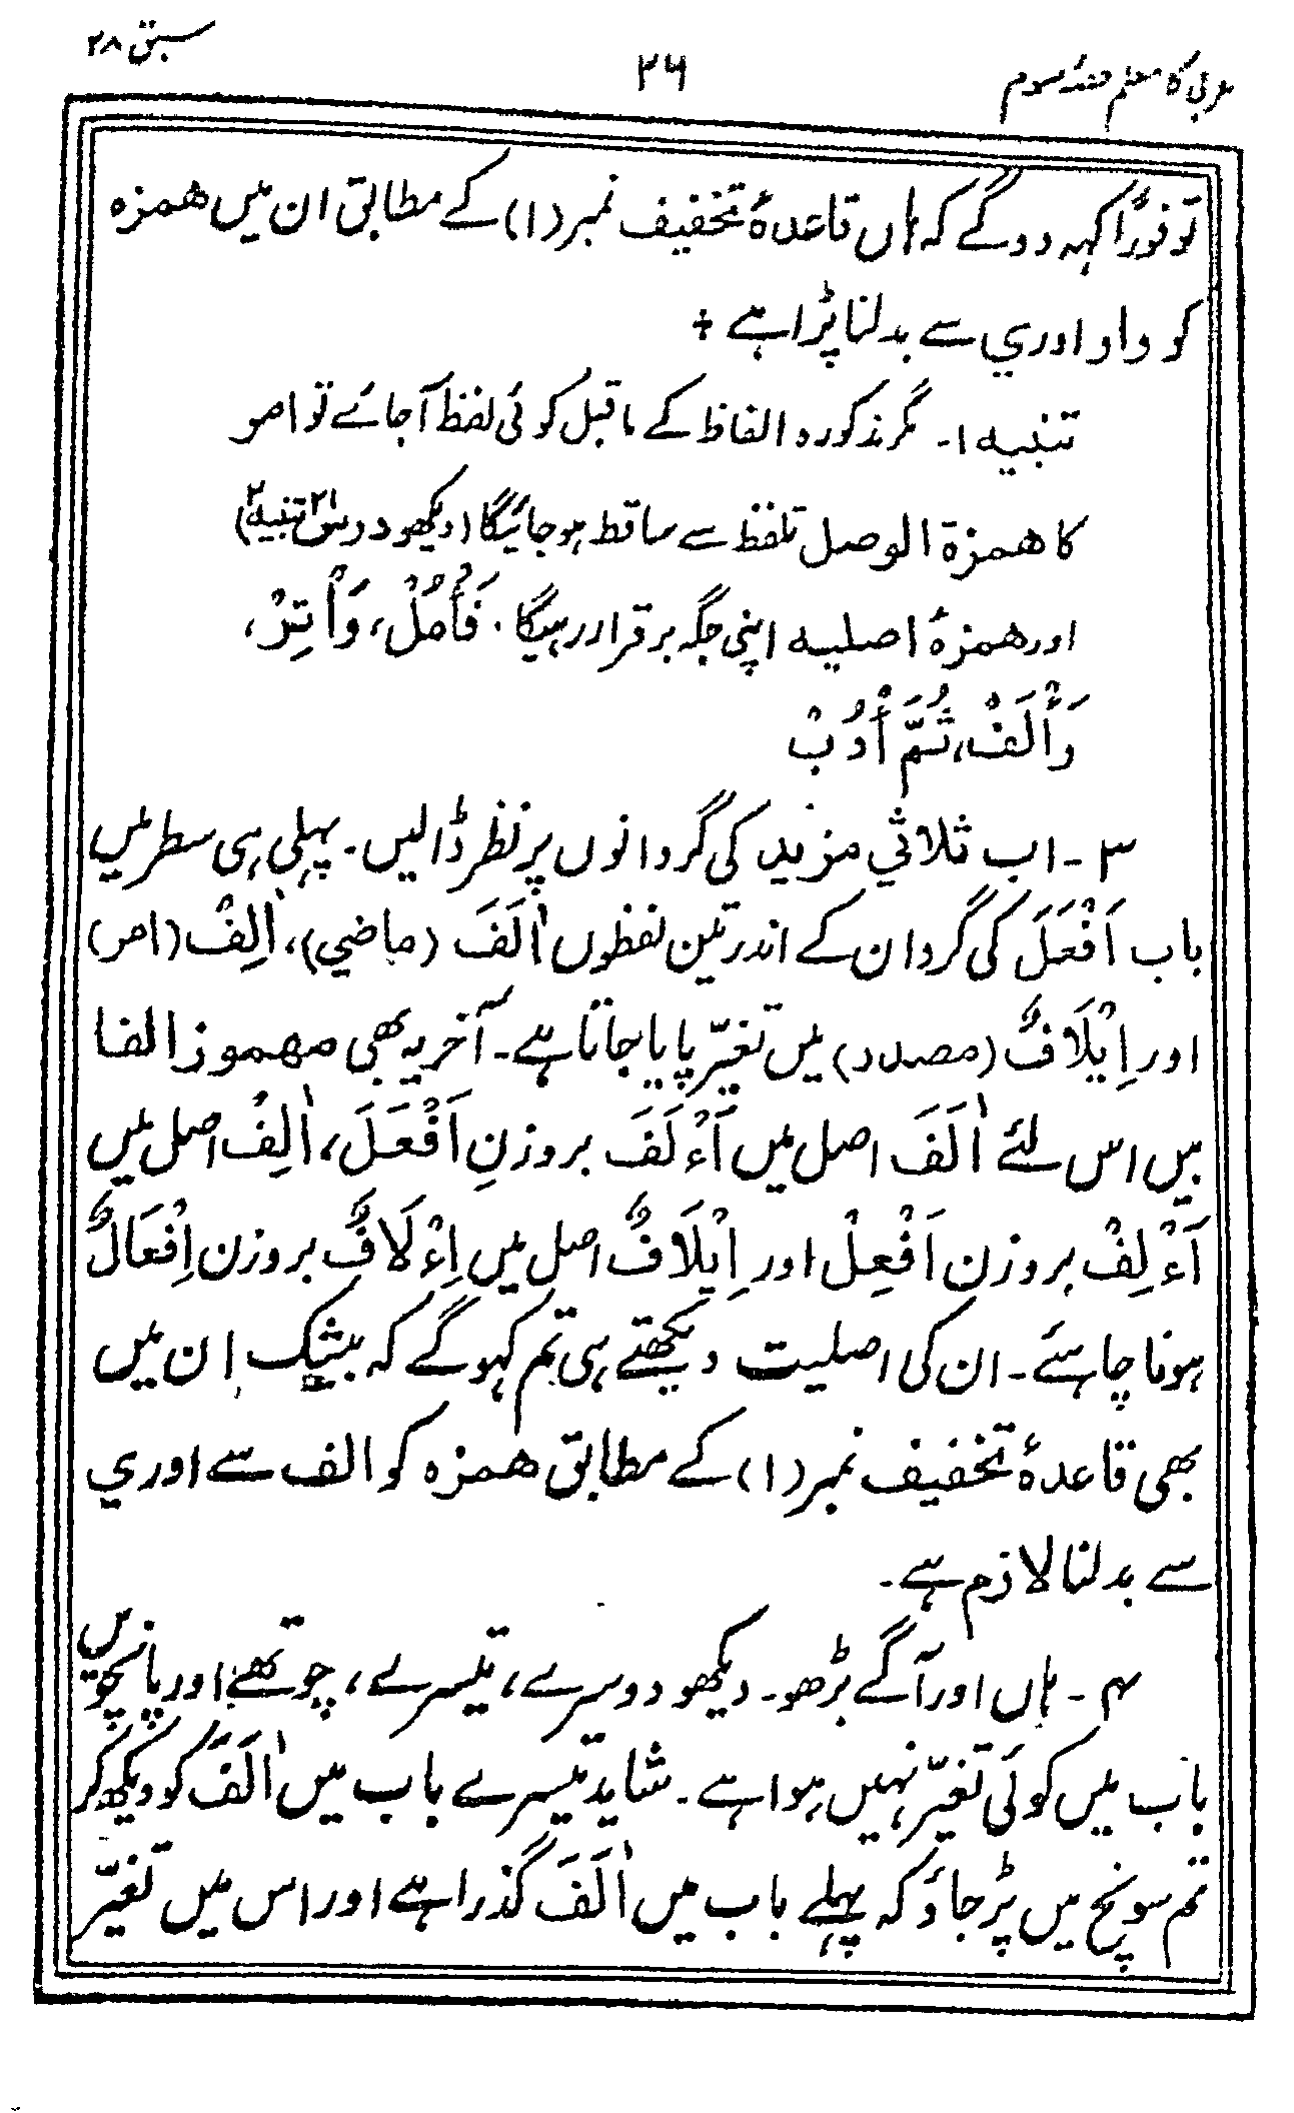 عربی کا معلم حصّہ سوم
۲۶
سبق ۲۸
تو فورًا کہہ دو گے کہ ہاں قاعدۂ تخفیف نمبر (۱) کے مطابق ان میں ھمزہ
کو واو اور ي سے بدلنا پڑا ہے ÷
تنبیہ ۱۔ مگر مذکورہ الفاظ کے ماقبل کوئی لفظ آجائے تو امر
کا ھمزۃ الوصل تلفظ سے ساقط ہو جائیگا (دیکھو درس ۲۱ تنبیہ ۲)
اور ھمزۂ اصلیہ اپنی جگہ برقرار رہیگا۔ فَأْمُلْ، وَأْتِرْ،
وَأْلَفْ، ثُمَّ أْدُبْ
۳۔ اب ثلاثي مزید کی گردانوں پر نظر ڈالیں۔ پہلی ہی سطر میں
باب اَفْعَلَ کی گردان کے اندر تین لفظوں اٰلَفَ (ماضي)، اٰلِفْ (امر)
اور اِیْلَافٌ (مصدر) میں تغیّر پایا جاتا ہے۔ آخر یہ بھی مھموز الفا
ہیں اس لئے اٰلَفَ اصل میں أَءْلَفَ بروزنِ اَفْعَلَ، اٰلِفْ اصل میں
أَءْلِفْ بروزن اَفْعِلْ اور اِیْلَافٌ اصل میں اِءْلَافٌ بروزن اِفْعَالٌ
ہونا چاہئے۔ ان کی اصلیت دیکھتے ہی تم کہو گے کہ بیشک ان میں
بھی قاعدۂ تخفیف نمبر (۱) کے مطابق ھمزہ کو الف سے اور ي
سے بدلنا لازم ہے۔
۴۔ ہاں اور آگے بڑھو۔ دیکھو دوسرے، تیسرے، چوتھے اور پانچویں
باب میں کوئی تغیّر نہیں ہوا ہے۔ شاید تیسرے باب میں اٰلَفَ کو دیکھ کر
تم سونچ میں پڑ جاؤ کہ پہلے باب میں اٰلَفَ گذرا ہے اور اس میں تغیّر